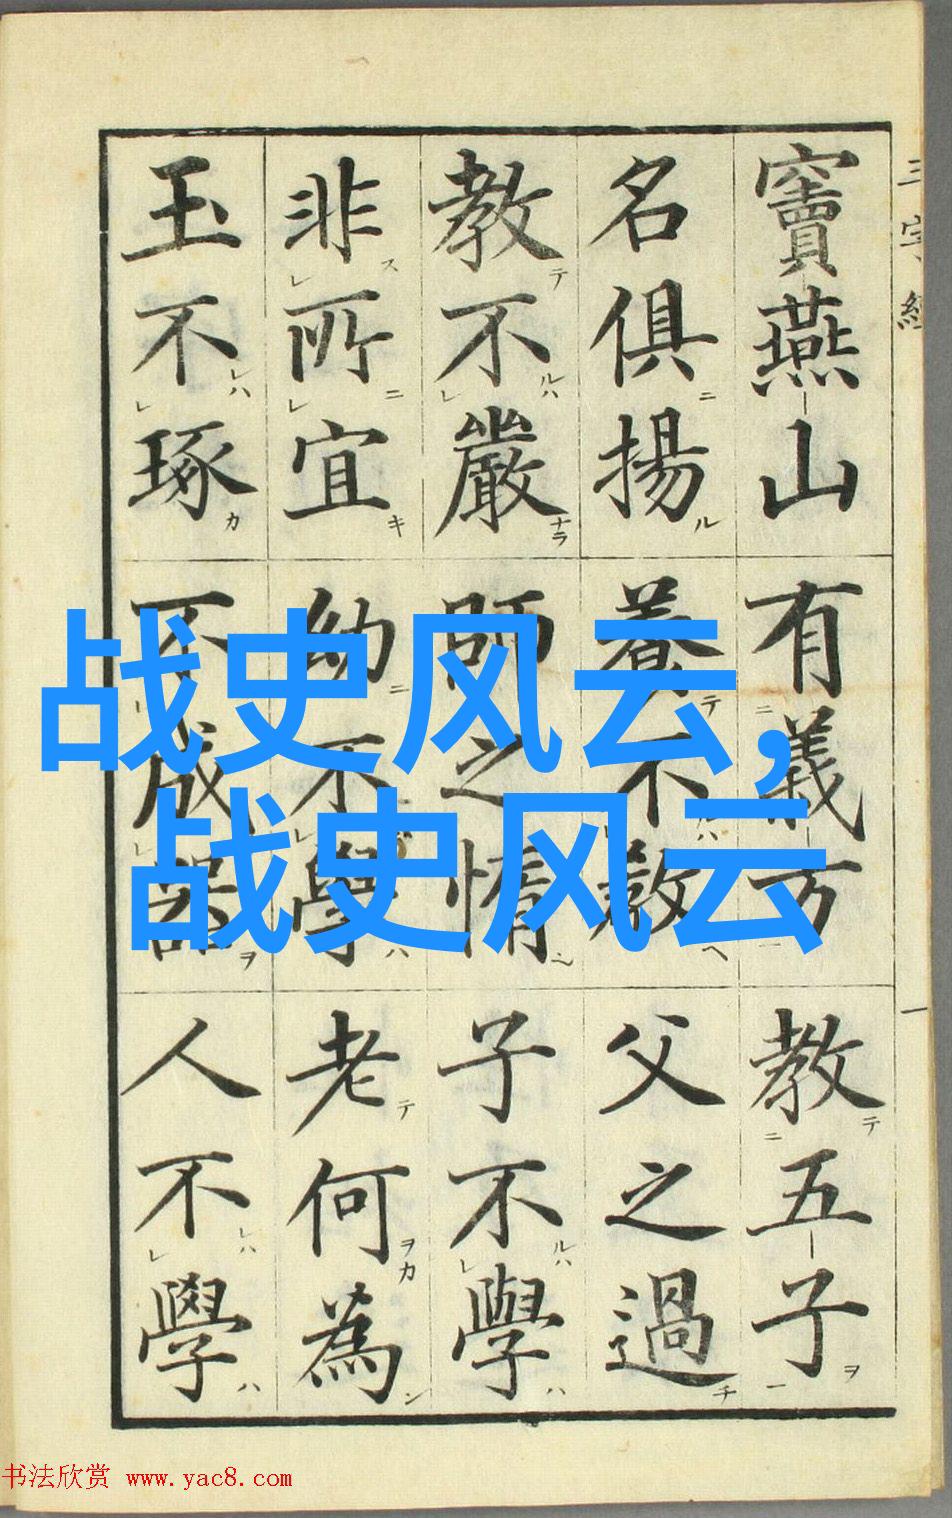 三字經
一
竇燕山有義方教五子
名俱揚養不教父之過
教不嚴師之惰子不學
非所宜幼不學老何為
玉不琢不成器人不學
战史风云,
战史风云
书法欣赏 www.yac8.com